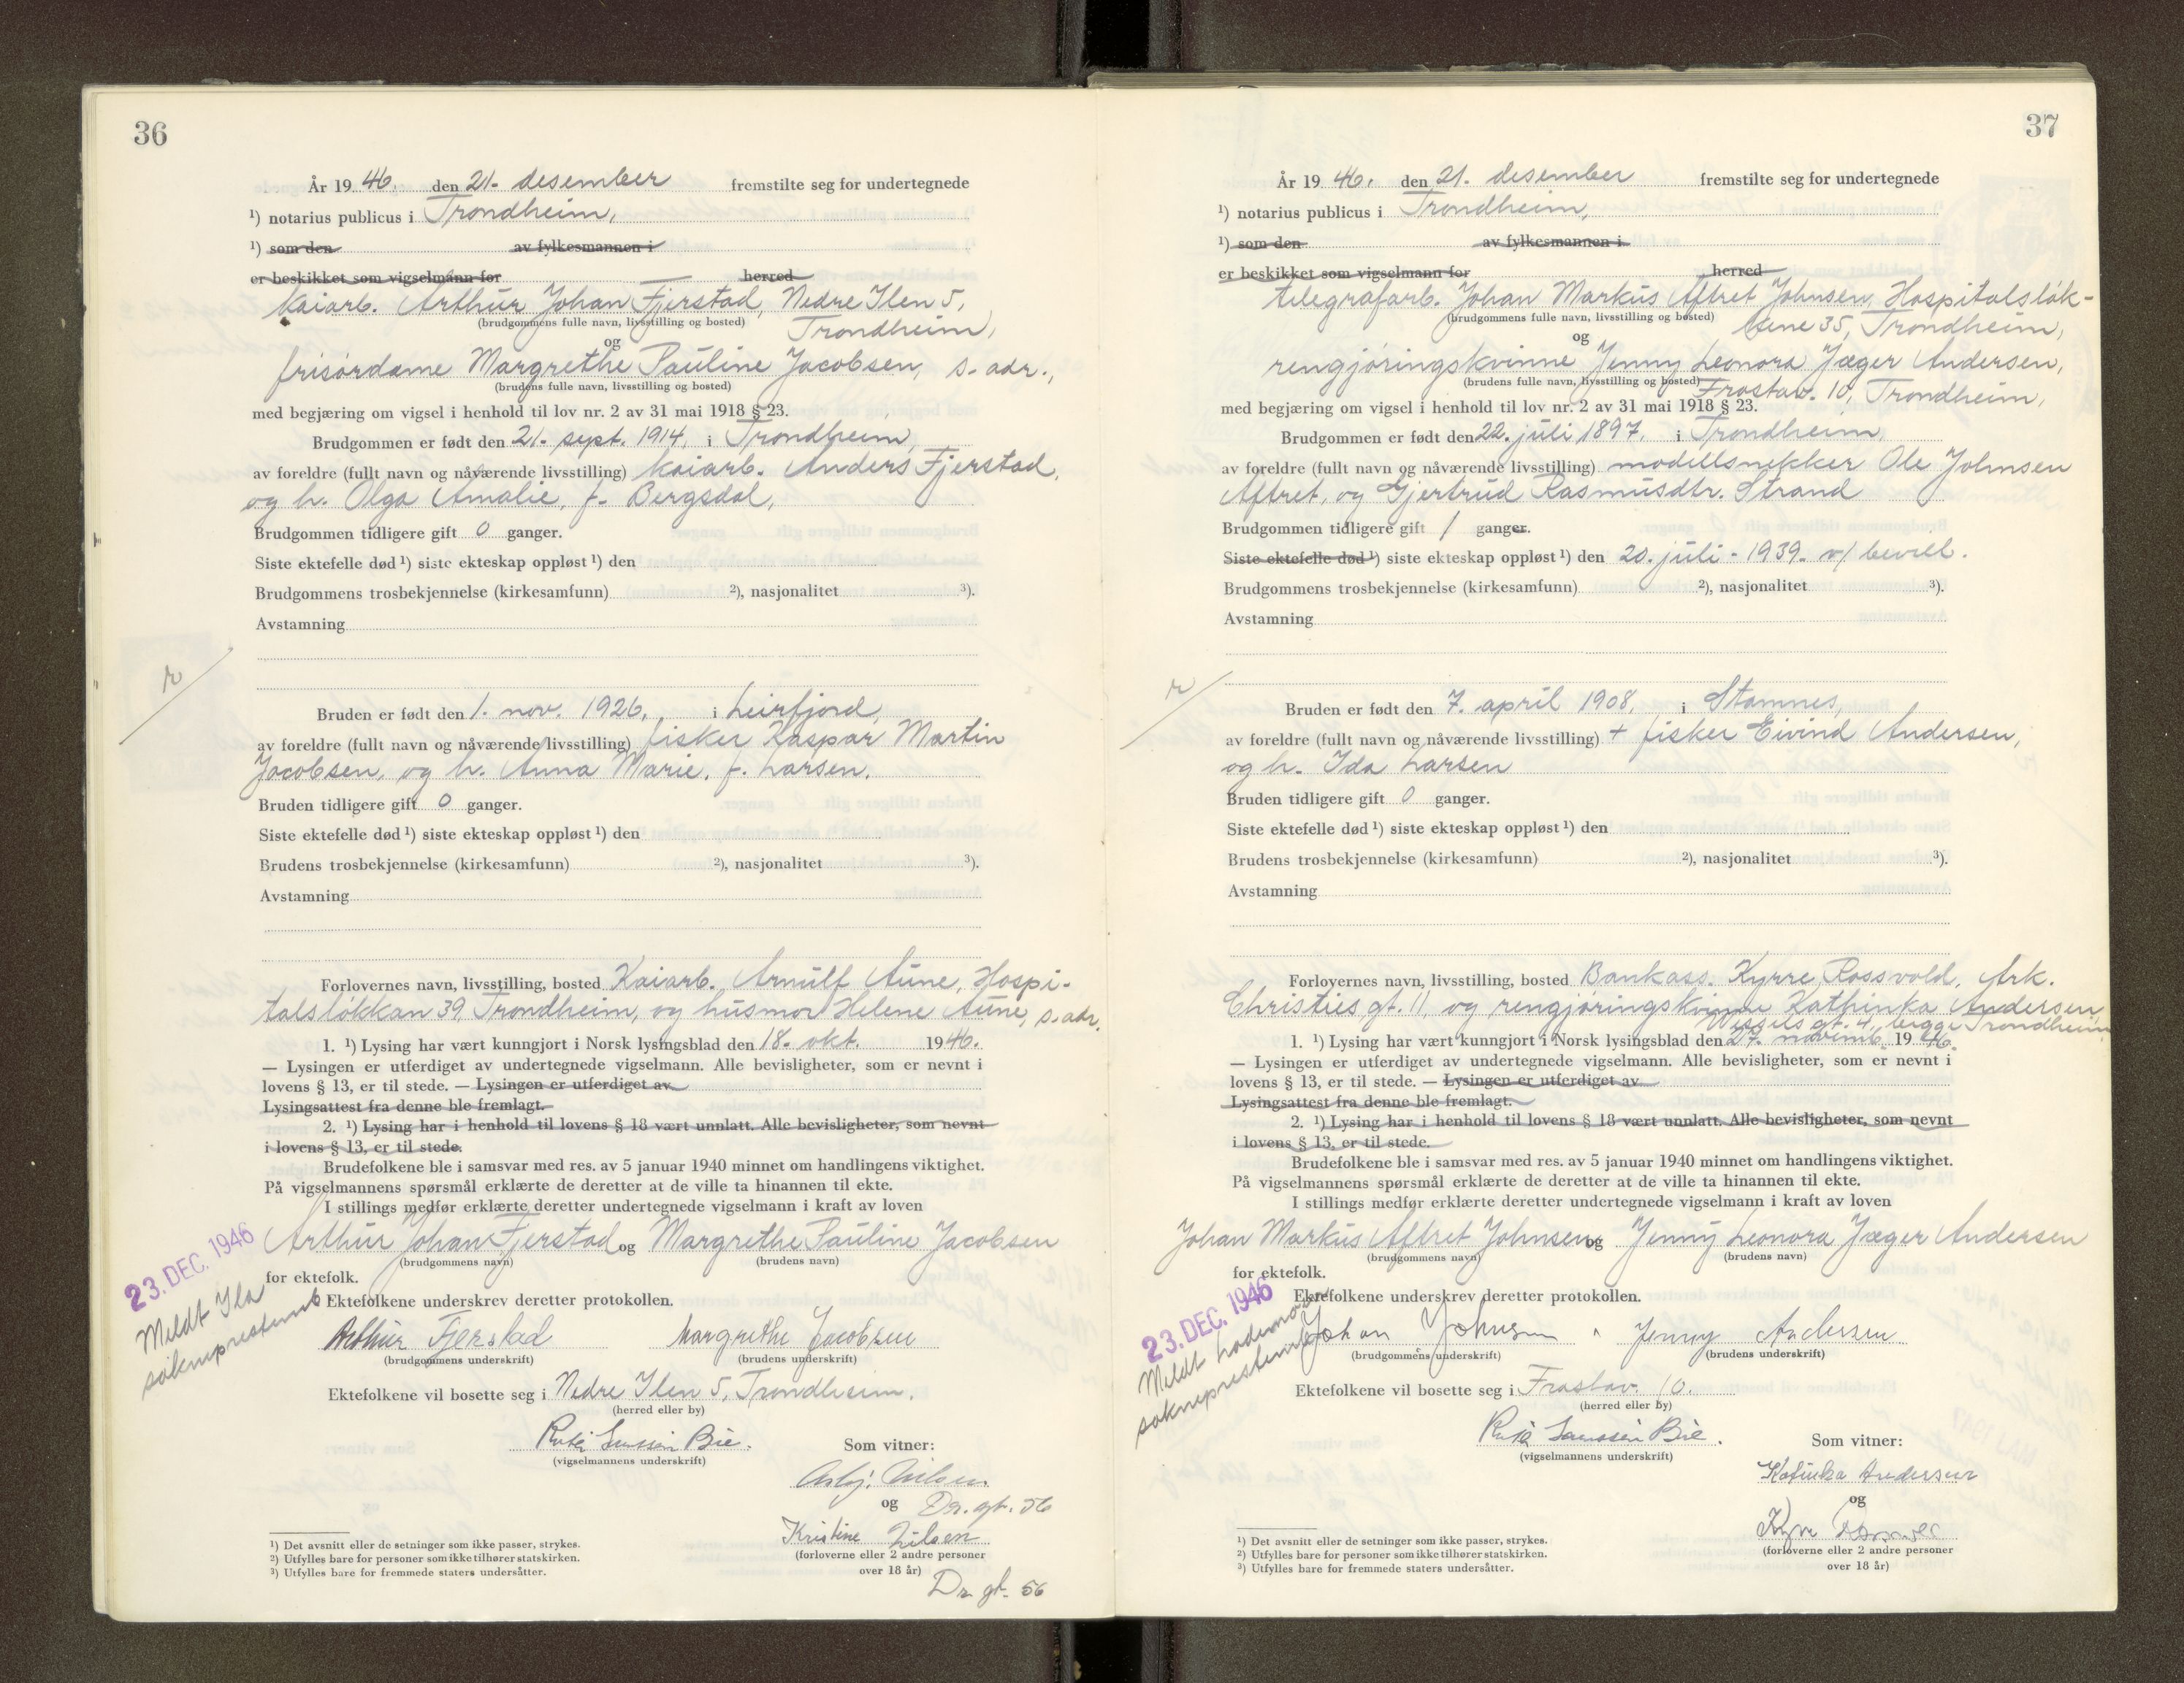 36
År 19 46. den 21. desember fremstilte seg for undertegnede
¹) notarius publicus i Trondheim,
¹) som den av fylkesmannen i
er beskikket som vigselmann for herred
kaiarb. Arthur Johan Fjerstad, Nedre Ilen 5,
(brudgommens fulle navn, livsstilling og bosted) Trondheim,
og
frisørdame Margrethe Pauline Jacobsen, s. adr.,
(brudens fulle navn, livsstilling og bosted)
med begjæring om vigsel i henhold til lov nr. 2 av 31 mai 1918 § 23.
Brudgommen er født den 21. sept. 1914, i Trondheim,
av foreldre (fullt navn og nåværende livsstilling) kaiarb. Anders Fjerstad,
og h. Olga Amalie, f. Bergsdal,
Brudgommen tidligere gift 0 ganger.
Siste ektefelle død ¹) siste ekteskap oppløst ¹) den
Brudgommens trosbekjennelse (kirkesamfunn) ²), nasjonalitet ³).
Avstamning
Bruden er født den 1. nov. 1926, i Leirfjord,
av foreldre (fullt navn og nåværende livsstilling) fisker Kaspar Martin
Jacobsen, og h. Anna Marie, f. Larsen.
Bruden tidligere gift 0 ganger.
Siste ektefelle død ¹) siste ekteskap oppløst ¹) den
Brudens trosbekjennelse (kirkesamfunn) ²), nasjonalitet ³).
Avstamning
Forlovernes navn, livsstilling, bosted Kaiarb. Arnulf Aune, Hospi-
talsløkkan 39, Trondheim, og husmor Helene Aune, s. adr.
1. ¹) Lysing har vært kunngjort i Norsk lysingsblad den 18. okt. 1946.
— Lysingen er utferdiget av undertegnede vigselmann. Alle bevisligheter, som er nevnt i
lovens § 13, er til stede. — Lysingen er utferdiget av
Lysingsattest fra denne ble fremlagt.
2. ¹) Lysing har i henhold til lovens § 18 vært unnlatt. Alle bevisligheter, som nevnt
i lovens § 13, er til stede.
Brudefolkene ble i samsvar med res. av 5 januar 1940 minnet om handlingens viktighet.
På vigselmannens spørsmål erklærte de deretter at de ville ta hinannen til ekte.
I stillings medfør erklærte deretter undertegnede vigselmann i kraft av loven
Arthur Johan Fjerstad og Margrethe Pauline Jacobsen
(brudgommens navn) (brudens navn)
for ektefolk.
23. DEC. 1946
Meldt Ila
sokneprestemb
Ektefolkene underskrev deretter protokollen.
Arthur Fjerstad Margrethe Jacobsen
(brudgommens underskrift) (brudens underskrift)
Ektefolkene vil bosette seg i Nedre Ilen 5, Trondheim.
(herred eller by)
Bie. Som vitner:
(vigselmannens underskrift)
Asbj. Nilsen
og Dr. gt. 56
Kristine Nilsen
(forloverne eller 2 andre personer
over 18 år)
Dr. gt. 56
¹) Det avsnitt eller de setninger som ikke passer, strykes.
²) Utfylles bare for personer som ikke tilhører statskirken.
³) Utfylles bare for fremmede staters undersåtter.
37
År 19 46. den 21. desember fremstilte seg for undertegnede
¹) notarius publicus i Trondheim,
¹) som den av fylkesmannen i
er beskikket som vigselmann for herred
telegrafarb. Johan Markus Aftret Johnsen, Hospitalsløk-
(brudgommens fulle navn, livsstilling og bosted) kene 35, Trondheim,
og
rengjøringskvinne Jenny Leonora Jæger Andersen,
(brudens fulle navn, livsstilling og bosted) Frostav. 10, Trondheim,
med begjæring om vigsel i henhold til lov nr. 2 av 31 mai 1918 § 23.
Brudgommen er født den 22. juli 1897, i Trondheim,
av foreldre (fullt navn og nåværende livsstilling) modellsnekker Ole Johnsen
Aftret, og Gjertrud Rasmusdtr. Strand
Brudgommen tidligere gift 1 ganger.
Siste ektefelle død ¹) siste ekteskap oppløst ¹) den 20. juli - 1939. v/ bevill.
Brudgommens trosbekjennelse (kirkesamfunn) ²), nasjonalitet ³).
Avstamning
Bruden er født den 7. april 1908, i Stamnes,
av foreldre (fullt navn og nåværende livsstilling) + fisker Eivind Andersen,
og h. Ida Larsen
Bruden tidligere gift 0 ganger.
Siste ektefelle død ¹) siste ekteskap oppløst ¹) den
Brudens trosbekjennelse (kirkesamfunn) ²), nasjonalitet ³).
Avstamning
Forlovernes navn, livsstilling, bosted Bankass. Kyrre Rossvold, Ark.
Christies gt. 11, og rengjøringskvinne Kathinka Andersen,
Wessels gt. 4, begge Trondheim
1. ¹) Lysing har vært kunngjort i Norsk lysingsblad den 27. novemb. 1946.
— Lysingen er utferdiget av undertegnede vigselmann. Alle bevisligheter, som er nevnt i
lovens § 13, er til stede. — Lysingen er utferdiget av
Lysingsattest fra denne ble fremlagt.
2. ¹) Lysing har i henhold til lovens § 18 vært unnlatt. Alle bevisligheter, som nevnt
i lovens § 13, er til stede.
Brudefolkene ble i samsvar med res. av 5 januar 1940 minnet om handlingens viktighet.
På vigselmannens spørsmål erklærte de deretter at de ville ta hinannen til ekte.
I stillings medfør erklærte deretter undertegnede vigselmann i kraft av loven
Johan Markus Aftret Johnsen og Jenny Leonora Jæger Andersen
(brudgommens navn) (brudens navn)
for ektefolk.
23. DEC. 1946
Meldt Lademoen
sokneprestemb
Ektefolkene underskrev deretter protokollen.
Johan Johnsen Jenny Andersen
(brudgommens underskrift) (brudens underskrift)
Ektefolkene vil bosette seg i Frostav. 10.
(herred eller by)
Bie. Som vitner:
(vigselmannens underskrift)
Katinka Andersen
og
(forloverne eller 2 andre personer
over 18 år)
¹) Det avsnitt eller de setninger som ikke passer, strykes.
²) Utfylles bare for personer som ikke tilhører statskirken.
³) Utfylles bare for fremmede staters undersåtter.